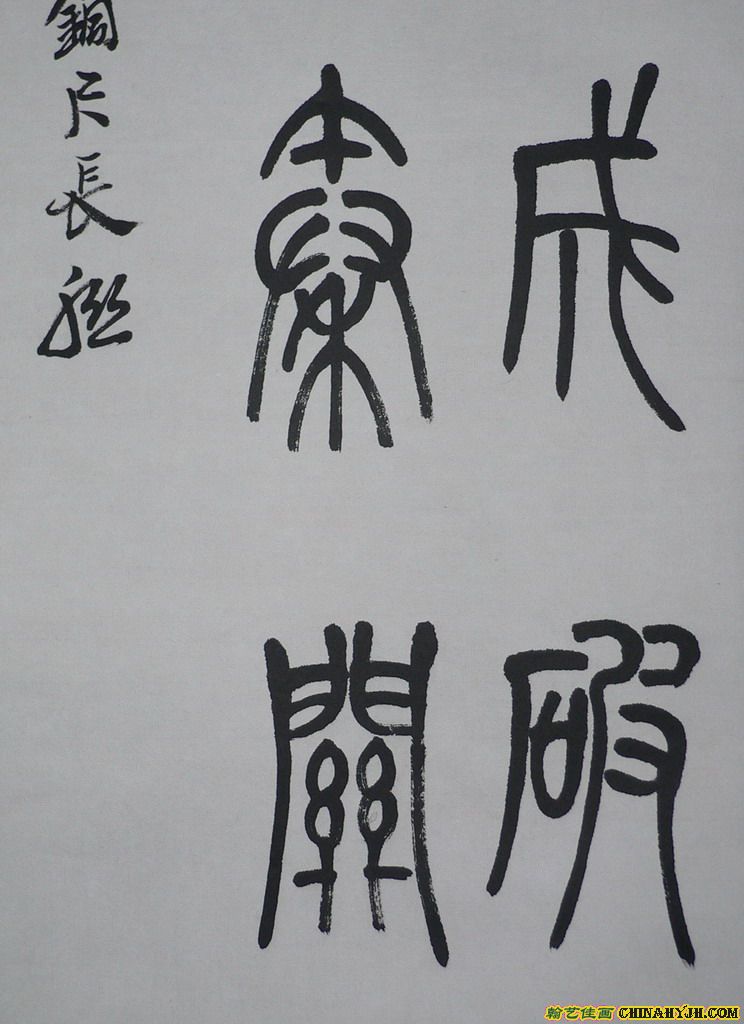 成破
秦關
銅尺長聯
翰艺佳画 CHINAHYJH.COM